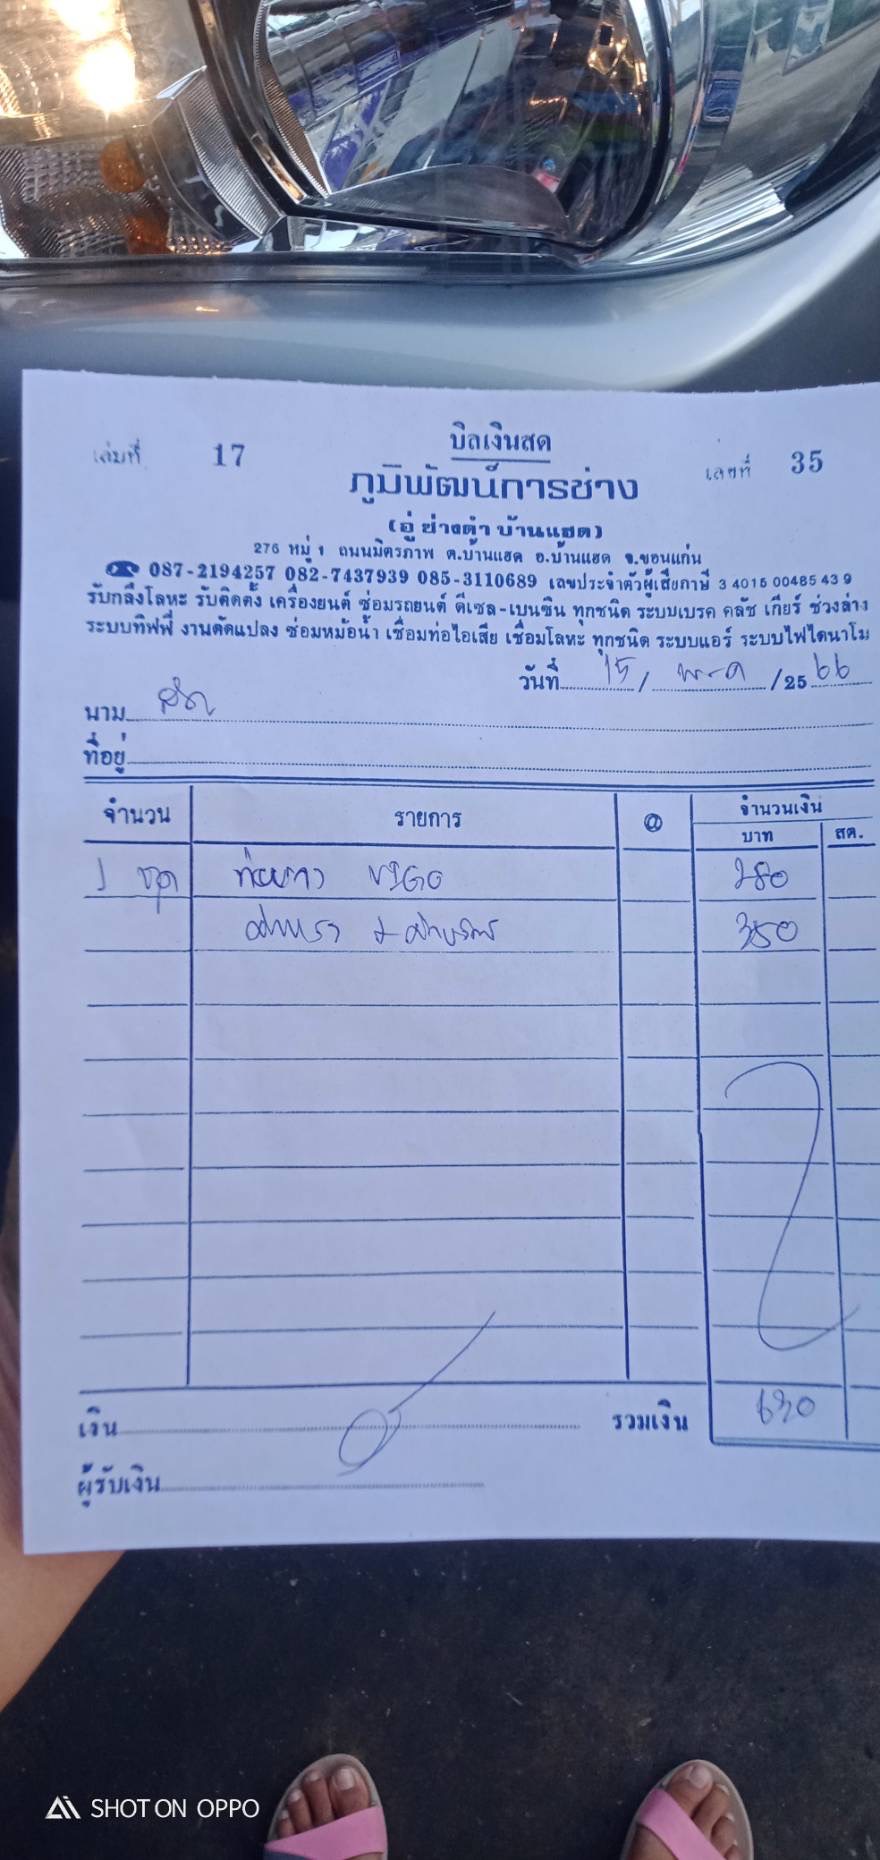 บิลเงินสด
เล่มที่ 17 เลขที่ 35
ภูมิพัฒน์การช่าง
(อู่ ช่างดำ บ้านแฮด)
276 หมู่ 1 ถนนมิตรภาพ ต.บ้านแฮด อ.บ้านแฮด จ.ขอนแก่น
087-2194257 082-7437939 085-3110689 เลขประจำตัวผู้เสียภาษี 3 4016 00485 43 9
รับกลึงโลหะ รับติดตั้ง เครื่องยนต์ ซ่อมรถยนต์ ดีเซล-เบนซิน ทุกชนิด ระบบเบรค คลัช เกียร์ ช่วงล่าง
ระบบทิฟฟี่ งานดัดแปลง ซ่อมหม้อน้ำ เชื่อมท่อไอเสีย เชื่อมโลหะ ทุกชนิด ระบบแอร์ ระบบไฟไดนาโม
วันที่ 15 / พ-ค /25 66
นาม สด
ที่อยู่
จำนวน รายการ @ จำนวนเงิน
บาท สต.
1 ชุด VIGO 280
350
เงิน รวมเงิน 630
ผู้รับเงิน
SHOT ON OPPO